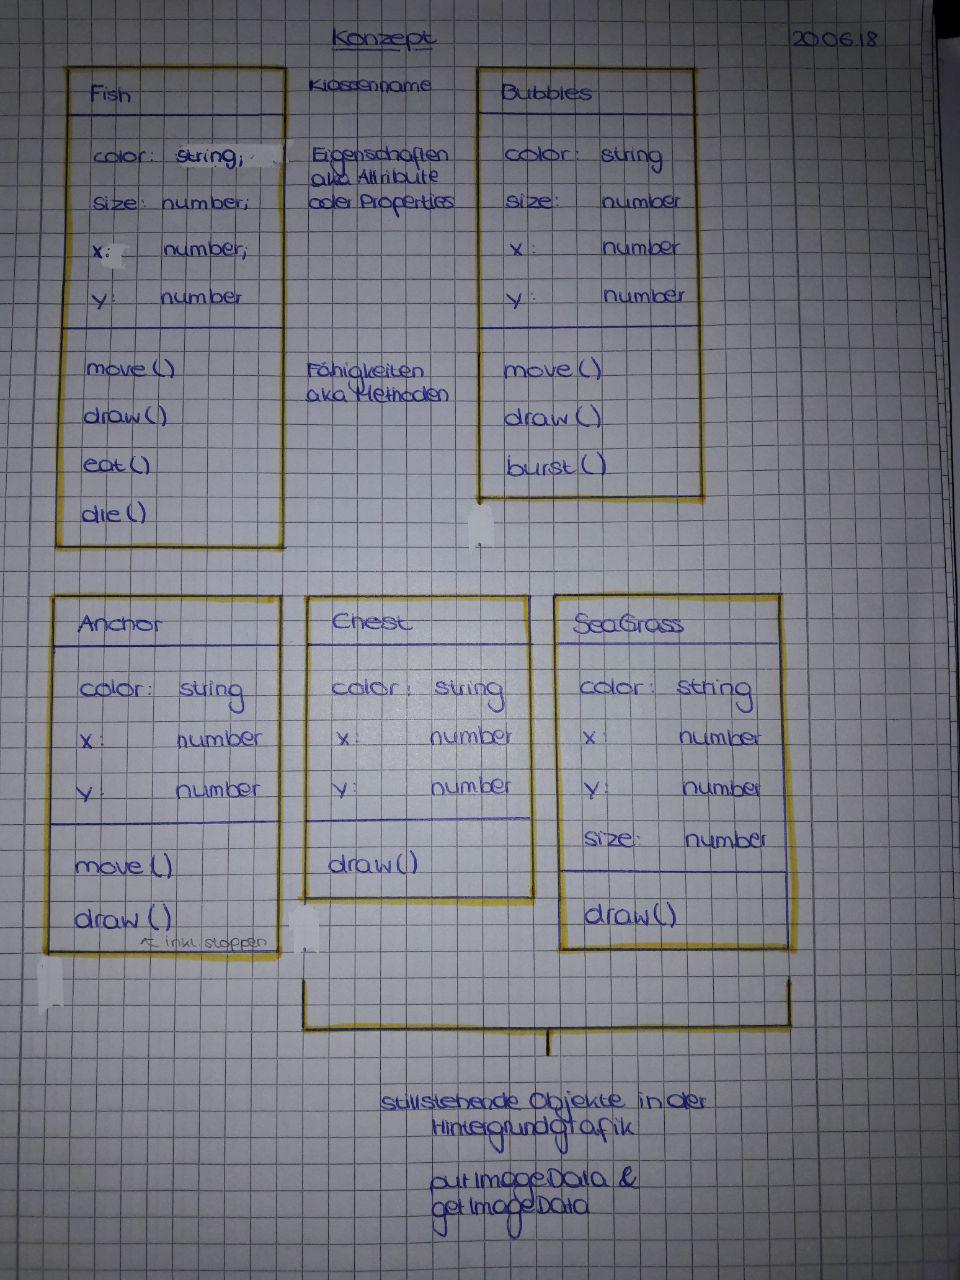 Konzept
20.06.18
Fish
color: string;
size: number;
x: number;
y: number
move()
draw()
eat()
die()
Klassenname
Eigenschaften
aka Attribute
oder Properties
Fähigkeiten
aka Methoden
Bubbles
color: string
size: number
x: number
y: number
move()
draw()
burst()
Anchor
color: string
x: number
y: number
move()
draw()
↑ inkl. stoppen
Chest
color: string
x: number
y: number
draw()
SeaGrass
color: string
x: number
y: number
size: number
draw()
stillstehende Objekte in der
Hintergrundgrafik
putImageData &
getImageData